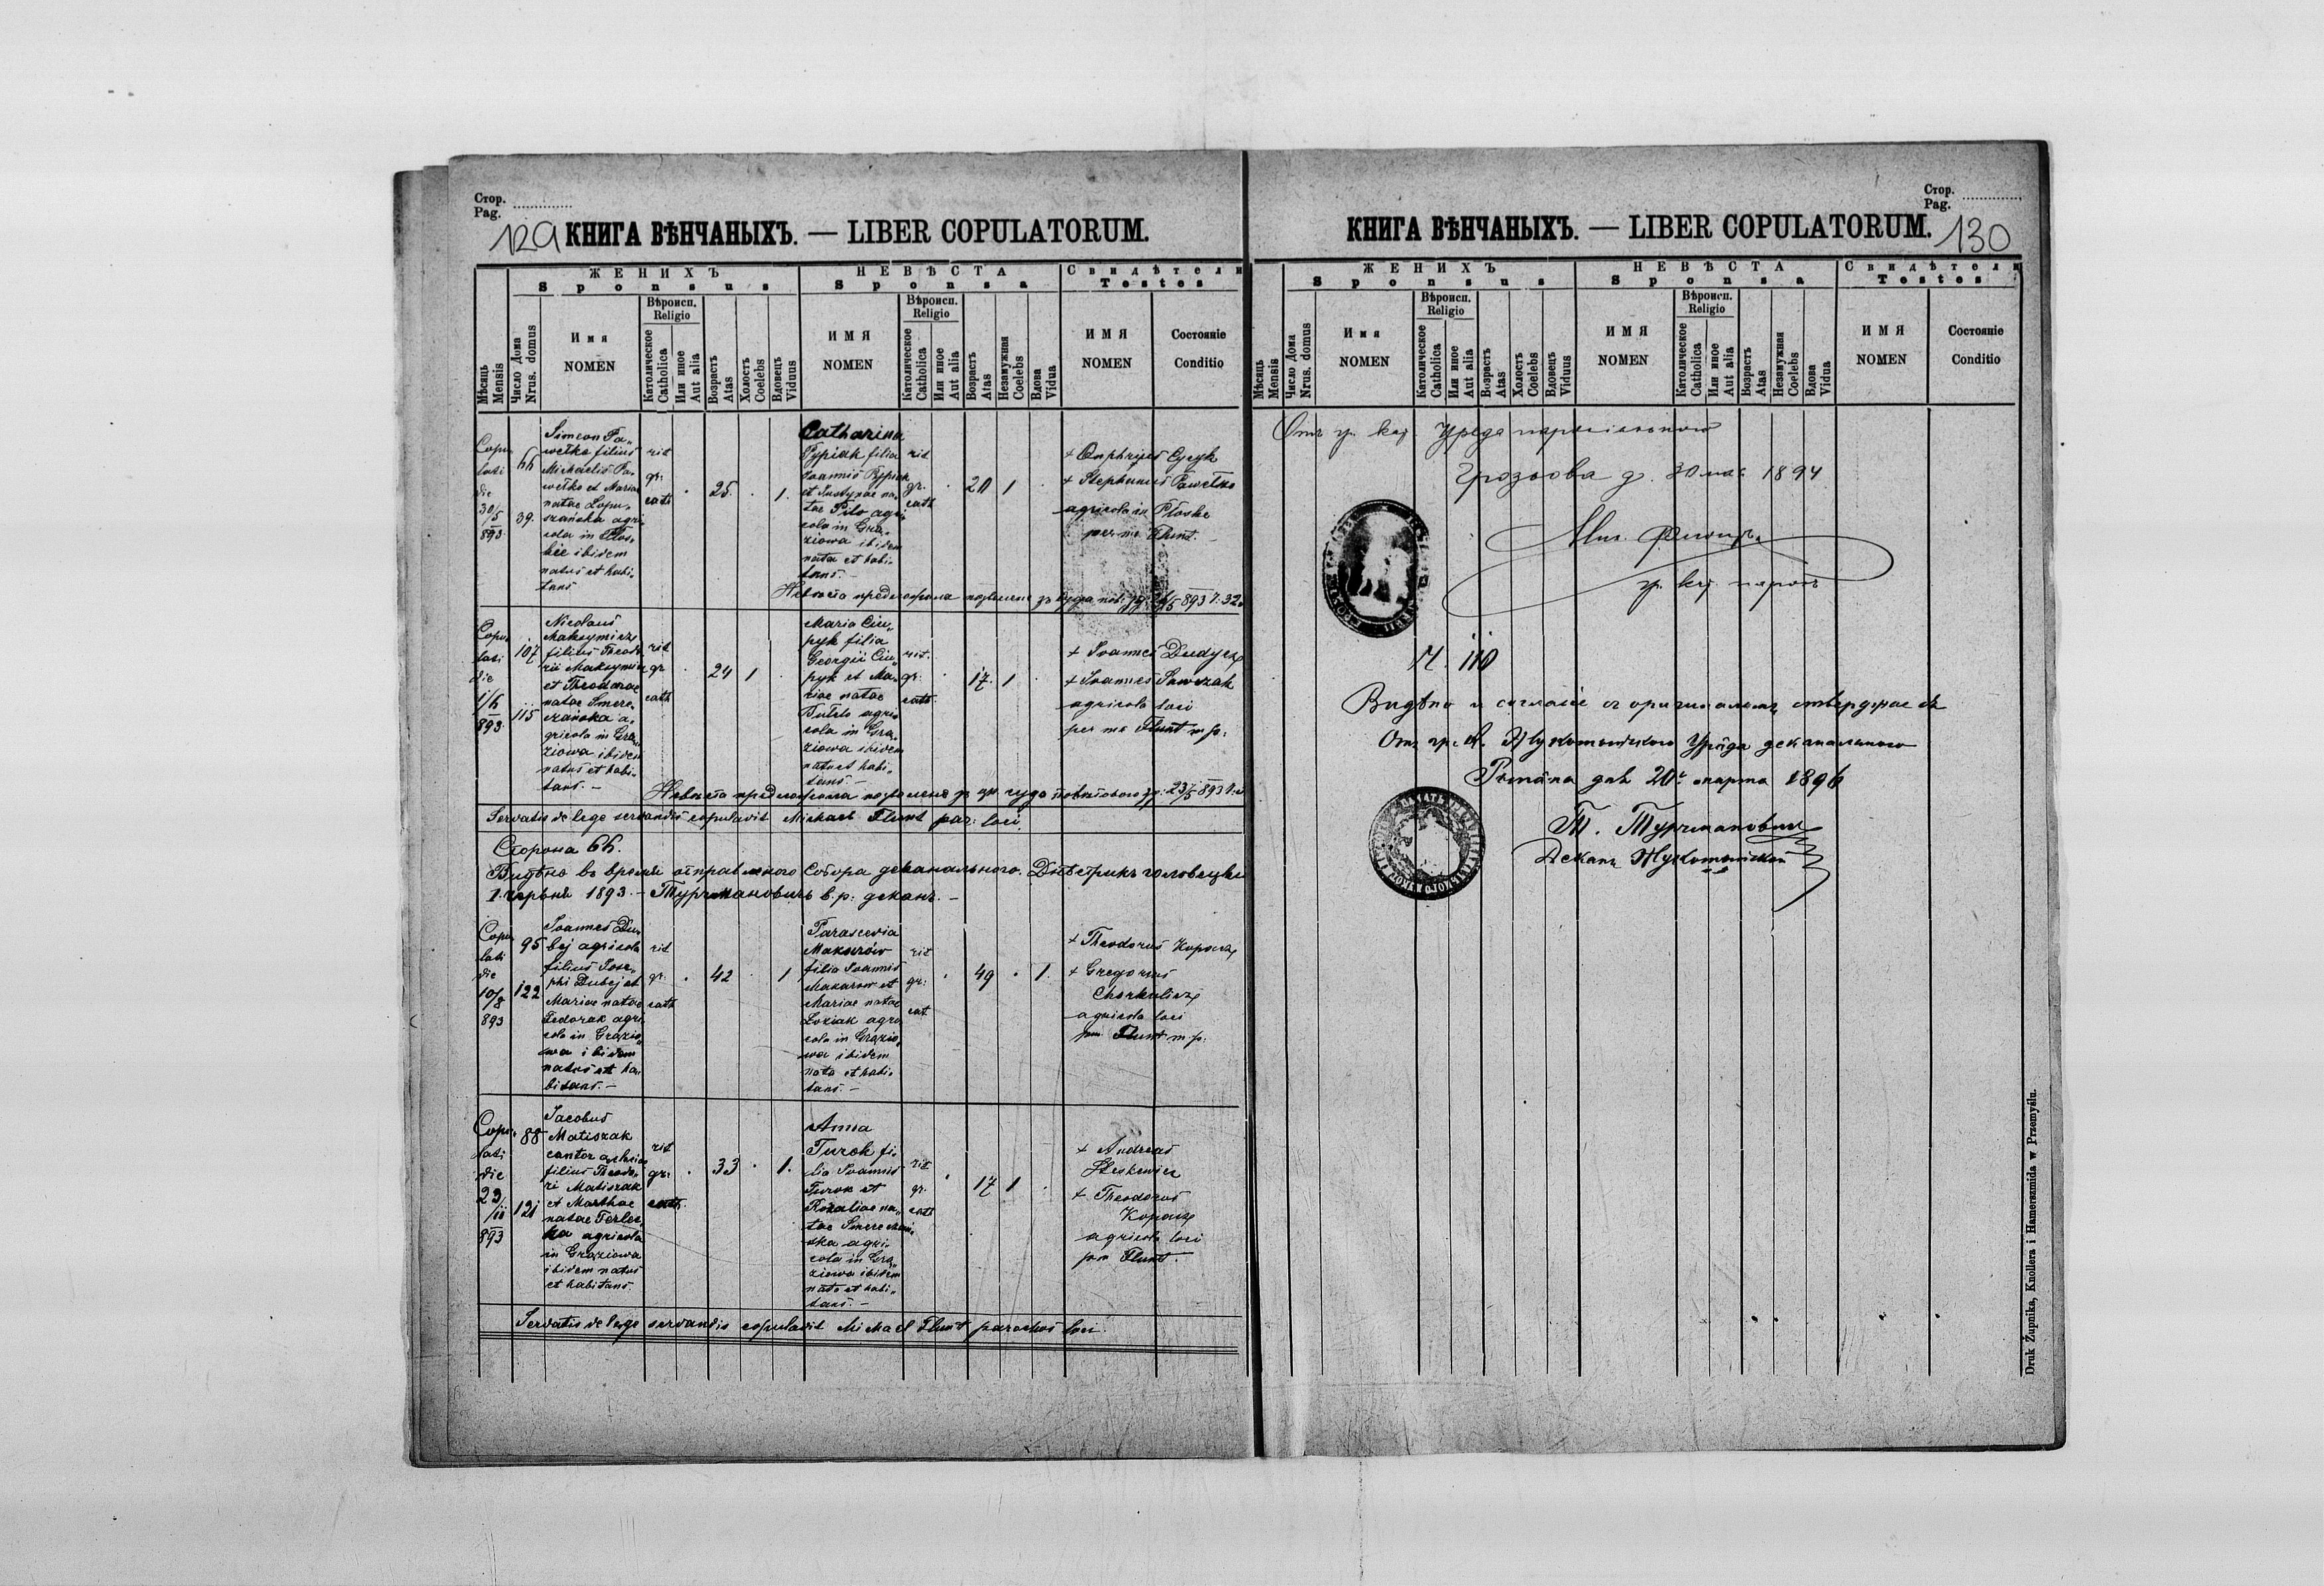 Стор.
Pag.
129 КНИГА ВѢНЧАНЫХЪ. — LIBER COPULATORUM.
Мѣсяць
Mensis
Число Дома
Nrus. domus
ЖЕНИХЪ
Sponsus
Имя
NOMEN
Вѣроисп.
Religio
Католическое
Catholica
Или иное
Aut alia
Возрастъ
Atas
Холостъ
Coelebs
Вдовецъ
Viduus
НЕВѢСТА
Sponsa
ИМЯ
NOMEN
Вѣроисп.
Religio
Католическое
Catholica
Или иное
Aut alia
Возрастъ
Atas
Незамужная
Coelebs
Вдова
Vidua
Свидѣтели
Testes
ИМЯ
NOMEN
Состояніе
Conditio
Copu„
lati
die
30/5
893
66
39.
Simeon Pa„
wełko filius
Michaelis Pa„
wełko et Mariae
natae Łopu„
szańska agri„
cola in
ibidem
natus et habi„
tans
rit
gr.
cath
25.
1.
Catharina
filia
Joannis
et na„
tae agri„
cola in Gra„
ziowa ibidem
nata et habi„
tans. –
rit
gr.
cath
1
+ Onphrijus
+ Stephanus Pawełko
agricola in Płoske
per me Flunt. –
Copu„
lati
die
1/6
893
107
115
Nicolaus
Maksymicz
filius Theodo„
rii Maksymicz
et Theodorae
natae Smere„
czańska a„
gricola in Gra„
ziowa ibidem
natus et habi„
tans. –
rit
gr
cath
24
1
Maria Ciu„
pyk filia
Georgii Ciu„
pyk et Ma„
riae natae
agri„
cola in Gra„
ziowa ibidem
nata et habi„
tans –
rit.
gr:
cath
17.
1
+ Joannes Dudycz
+ Joannes Sawczak
agricola loci
per me Flunt mp:
Servatis de lege servandis copulavit Michael Flunt par: loci.
Сторона 66.
Видѣно въ время отправленого Собора деканального. Днѣстрикъ головецкій
1. червня 1893. – Турчмановичъ в. р: деканъ. –
Copu„
lati
die
10/8
893
95
122
Joannes Du„
bej agricola
filius Jose„
phi Dubej et
Mariae natae
Fedorak agri„
cola in Grazio„
wa ibidem
natus et ha„
bitans. –
rit
gr.
cath
42
1
Parascevia
Makarów
filia Joannis
Makarow et
Mariae natae
Łoziak agri„
cola in Grazio„
wa ibidem
nata et habi„
tans. –
rit
gr:
cat
49
1.
+ Theodorus Kopacz
+ Gregorius
agricola loci
pm Flunt mp:
Copu„
lati
die
23/11
893
88
121
Jacobus
Matiszak
cantor ecclesiae
filius Theodo„
ri Matiszak
et Marthae
natae Terlec„
ka agricola
in Graziowa
ibidem natus
et habitans.
rit
gr:
cath.
33
1.
Anna
Turok fi„
lia Joannis
Turok et
Rozaliae na„
tae Smereczań„
ska agri„
cola in Gra„
ziowa ibidem
nata et habi„
tans. –
rit
gr.
cath
17
1
+ Andreas
+ Theodorus
Kopacz
agricola loci
pm Flunt.
Servatis de lege servandis copulavit Michael Flunt parochus loci.
Стор.
Pag.
КНИГА ВѢНЧАНЫХЪ. — LIBER COPULATORUM. 130
Мѣсяць
Mensis
Число Дома
Nrus. domus
ЖЕНИХЪ
Sponsus
Имя
NOMEN
Вѣроисп.
Religio
Католическое
Catholica
Или иное
Aut alia
Возрастъ
Atas
Холостъ
Coelebs
Вдовецъ
Viduus
НЕВѢСТА
Sponsa
ИМЯ
NOMEN
Вѣроисп.
Religio
Католическое
Catholica
Или иное
Aut alia
Возрастъ
Atas
Незамужная
Coelebs
Вдова
Vidua
Свидѣтели
Testes
ИМЯ
NOMEN
Состояніе
Conditio
Отъ гр. кат. Уряда парохіяльного
Грозьова д. 30 1894
гр. кат. парохъ
Ч. 110
Видѣно и согласіе съ оригиналомъ стверджае ся
Отъ гр. к. Жукотиньского Уряда деканального
Рѣпяна днѣ 20. марта 1896
Т. Турчмановичъ
Деканъ Жукотиньскій
Druk Żupnika, Knollera i Hamerszmida w Przemyślu.